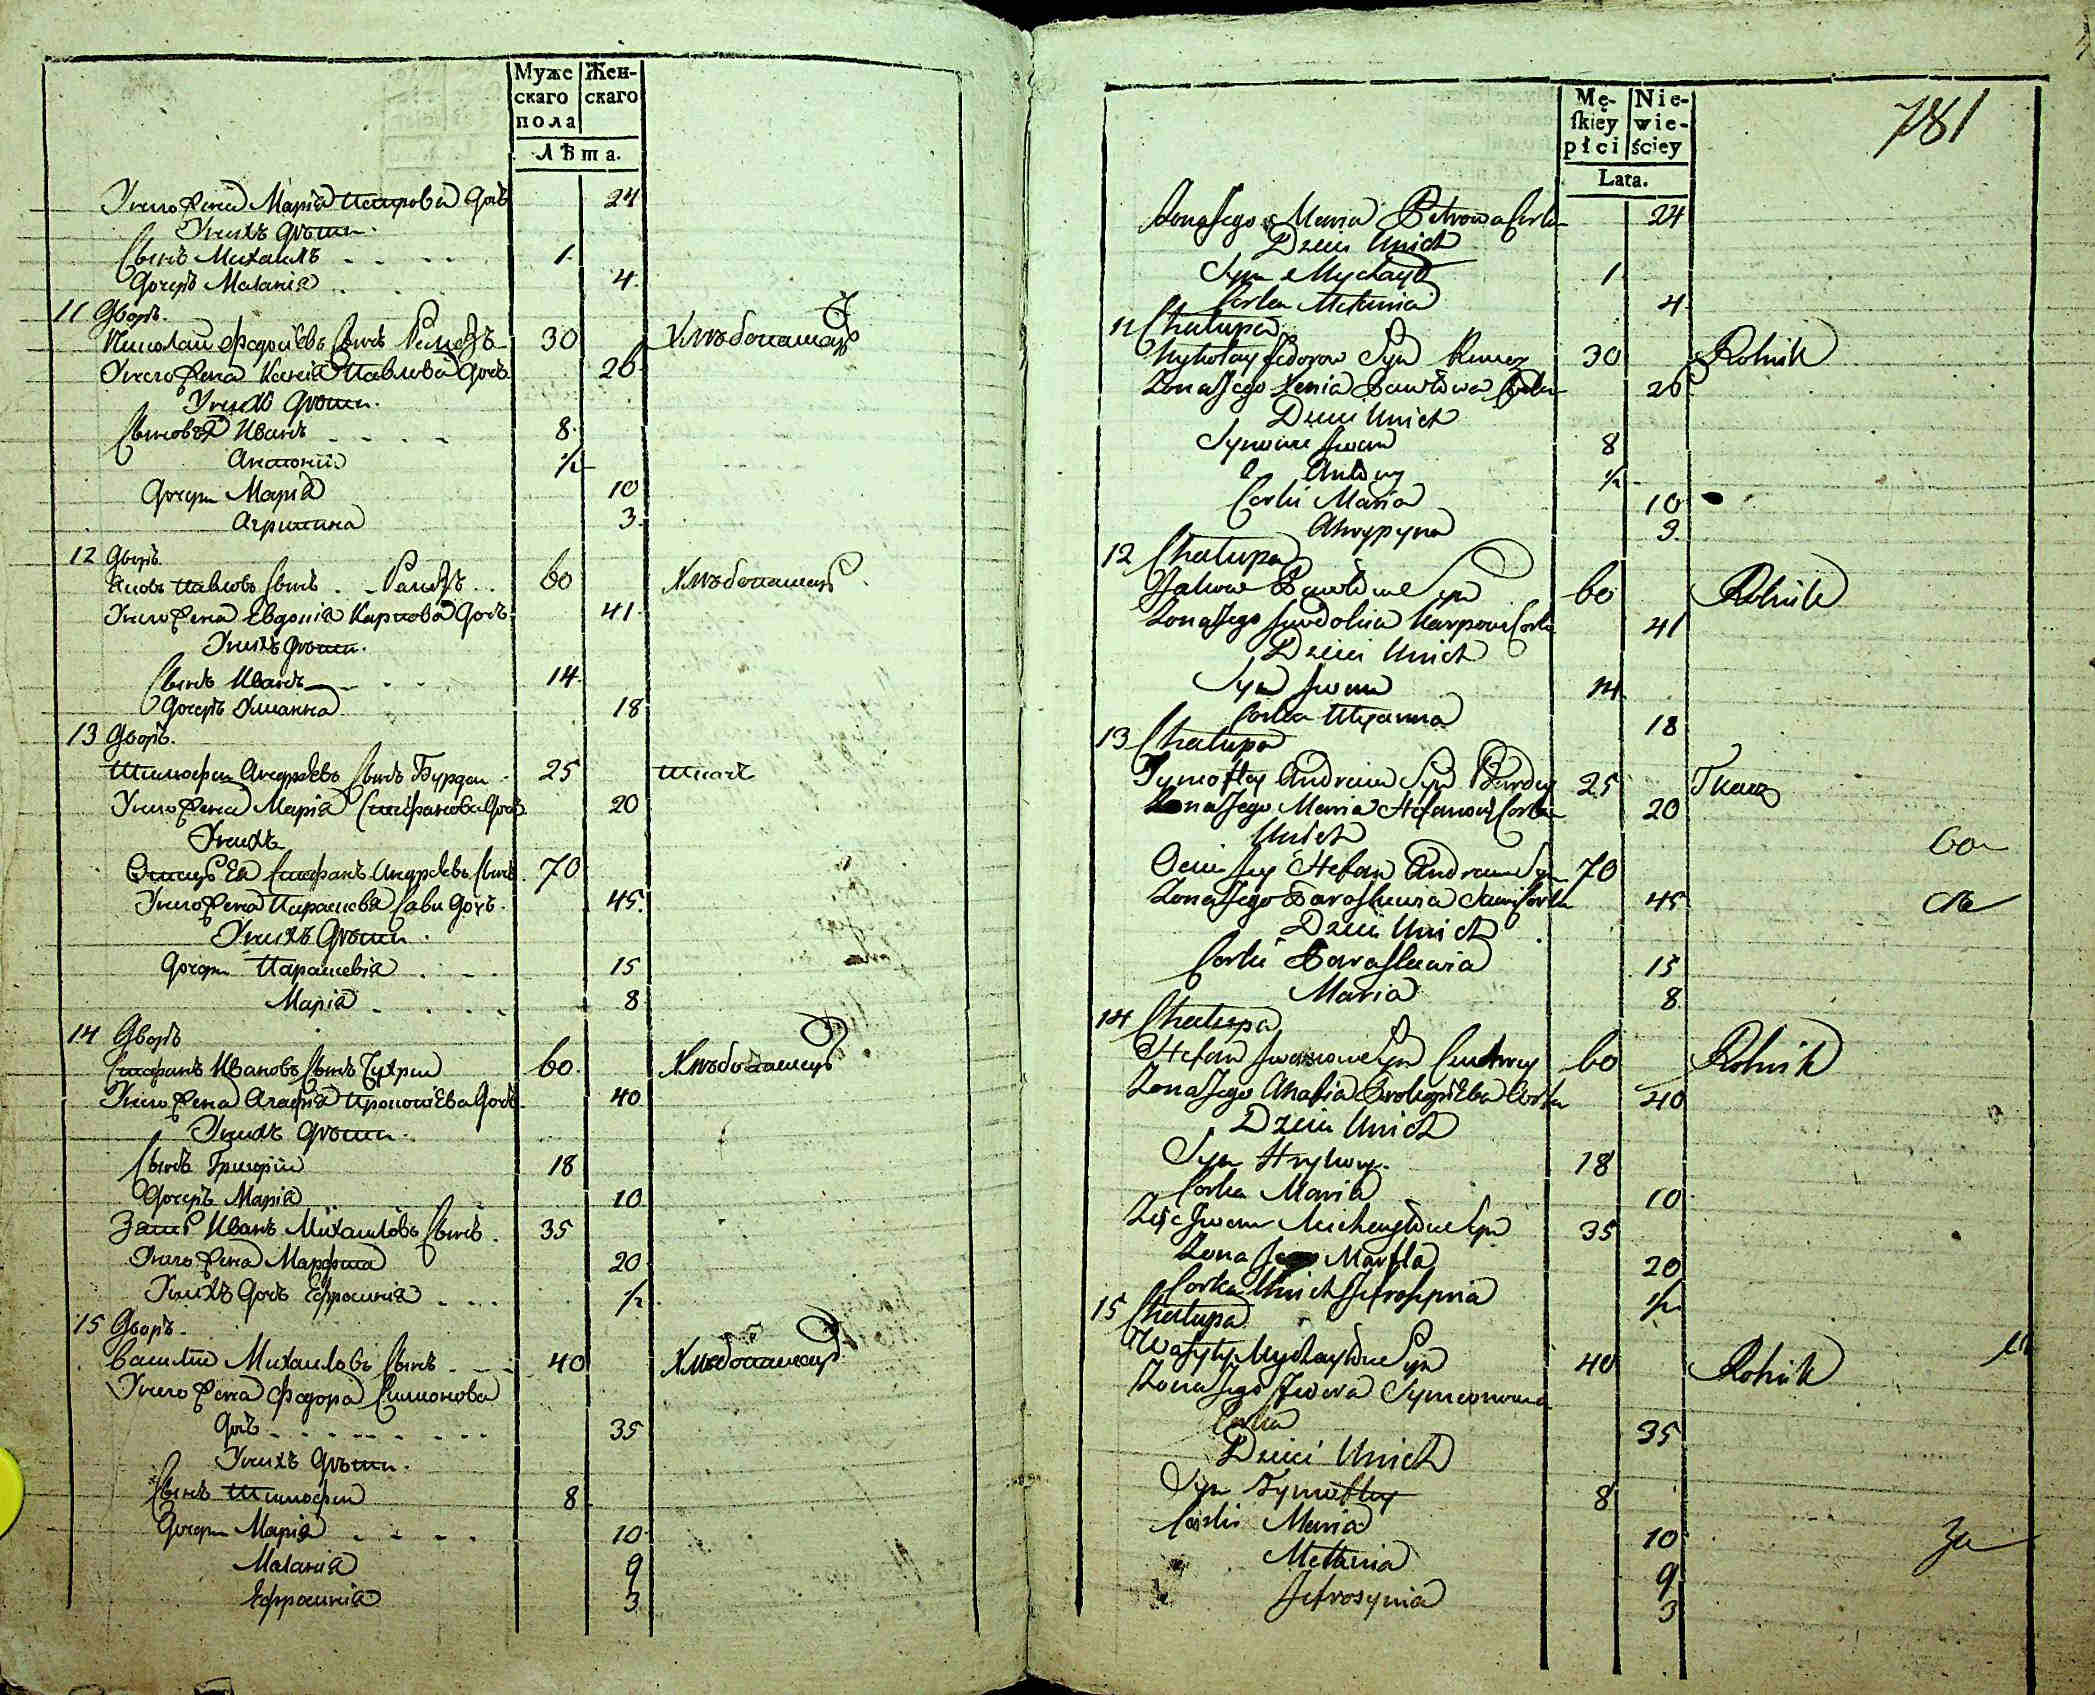 Муже
скаго
пола
Жен-
скаго
Лѣта.
У него жена Марiя Петрова дочь 24
У нихъ дѣти.
Сынъ Михаилъ 1
Дочерь Маланiя 4
11 Дворъ.
Николай Федорiевъ Сынъ 30 Хлѣбопашецъ
У него жена Ксенiя Павлова дочь 26
У нихъ дѣти.
Сыновья Иванъ 8
Антонiй ½
Дочери Марiя 10
Агрипина 3
12 Дворъ
Яковъ Павловъ Сынъ 60 Хлѣбопашецъ
У него жена Евдокiя Карпова дочь 41
У нихъ дѣти.
Сынъ Иванъ 14
Дочерь Улианна 18
13 Дворъ.
Тимофей Андрѣевъ Сынъ Бурдей 25 Ткачъ
У него жена Марiя Стефанова дочь 20
У нихъ
Отецъ Ея Стефанъ Андрѣевъ Сынъ 70
У него жена Парасковiя Савы дочь 45
У нихъ дѣти.
Дочери Парасковiя 15
Марiя 8
14 Дворъ
Стефанъ Ивановъ Сынъ 60 Хлѣбопашецъ
У него жена Агафiя Прокопiева дочь 40
У нихъ дѣти.
Сынъ Григорiй 18
Дочерь Марiя 10
Зять Иванъ Михайловъ Сынъ 35
У него жена Марфта 20
У нихъ дочь Ефросинiя ½
15 Дворъ.
Василiй Михайловъ Сынъ 40 Хлѣбопашецъ
У него жена Федора Симионова
дочь 35
У нихъ дѣти.
Сынъ Тимофей 8
Дочери Марiя 10
Маланiя 9
Ефросинiя 3
781
Mę-
ſkiey
płci
Nie-
wie-
ściey
Lata.
Zona Jego Maria Petrowa Corka 24
Dzieci Unich
Syn Mychayło 1
Corka Mełania 4
11 Chałupa
Mykołay Fedorow Syn 30 Rolnik
Zona Jego Xenia Pawłowa Corka 26
Dzieci Unich
Synowie Jwan 8
Antony ½
Corki Maria 10
Ahrypyna 3
12 Chałupa
Jakow Pawłow Syn 60 Rolnik
Zona Jego Jewdokia Karpowa Corka 41
Dzieci Unich
Syn Jwan 14
Corka Ulyanna 18
13 Chałupa
Tymoftey Andreiew Syn Burdey 25 Tkacz
Zona Jego Maria Stefanowa Corka 20
Unich
Ociec Jey Stefan Andreiew Syn 70
Zona Jego Paraskewia Sawy Corka 45
Dzieci Unich
Corki Paraskewia 15
Maria 8
14 Chałupa
Stefan Jwanow Syn 60 Rolnik
Zona Jego Ahafia Prokopiewa Corka 40
Dzieci Unich
Syn Hryhory 18
Corka Maria 10
Zięc Jwan Michayłow Syn 35
Zona Jego Marfta 20
Corka Unich Jefrosynia ½
15 Chałupa
Wasyly Mychayłow Syn 40 Rolnik
Zona Jego Fedora Symeonowa
Corka 35
Dzieci Unich
Syn Tymoftey 8
Corki Maria 10
Mełania 9
Jefrosynia 3